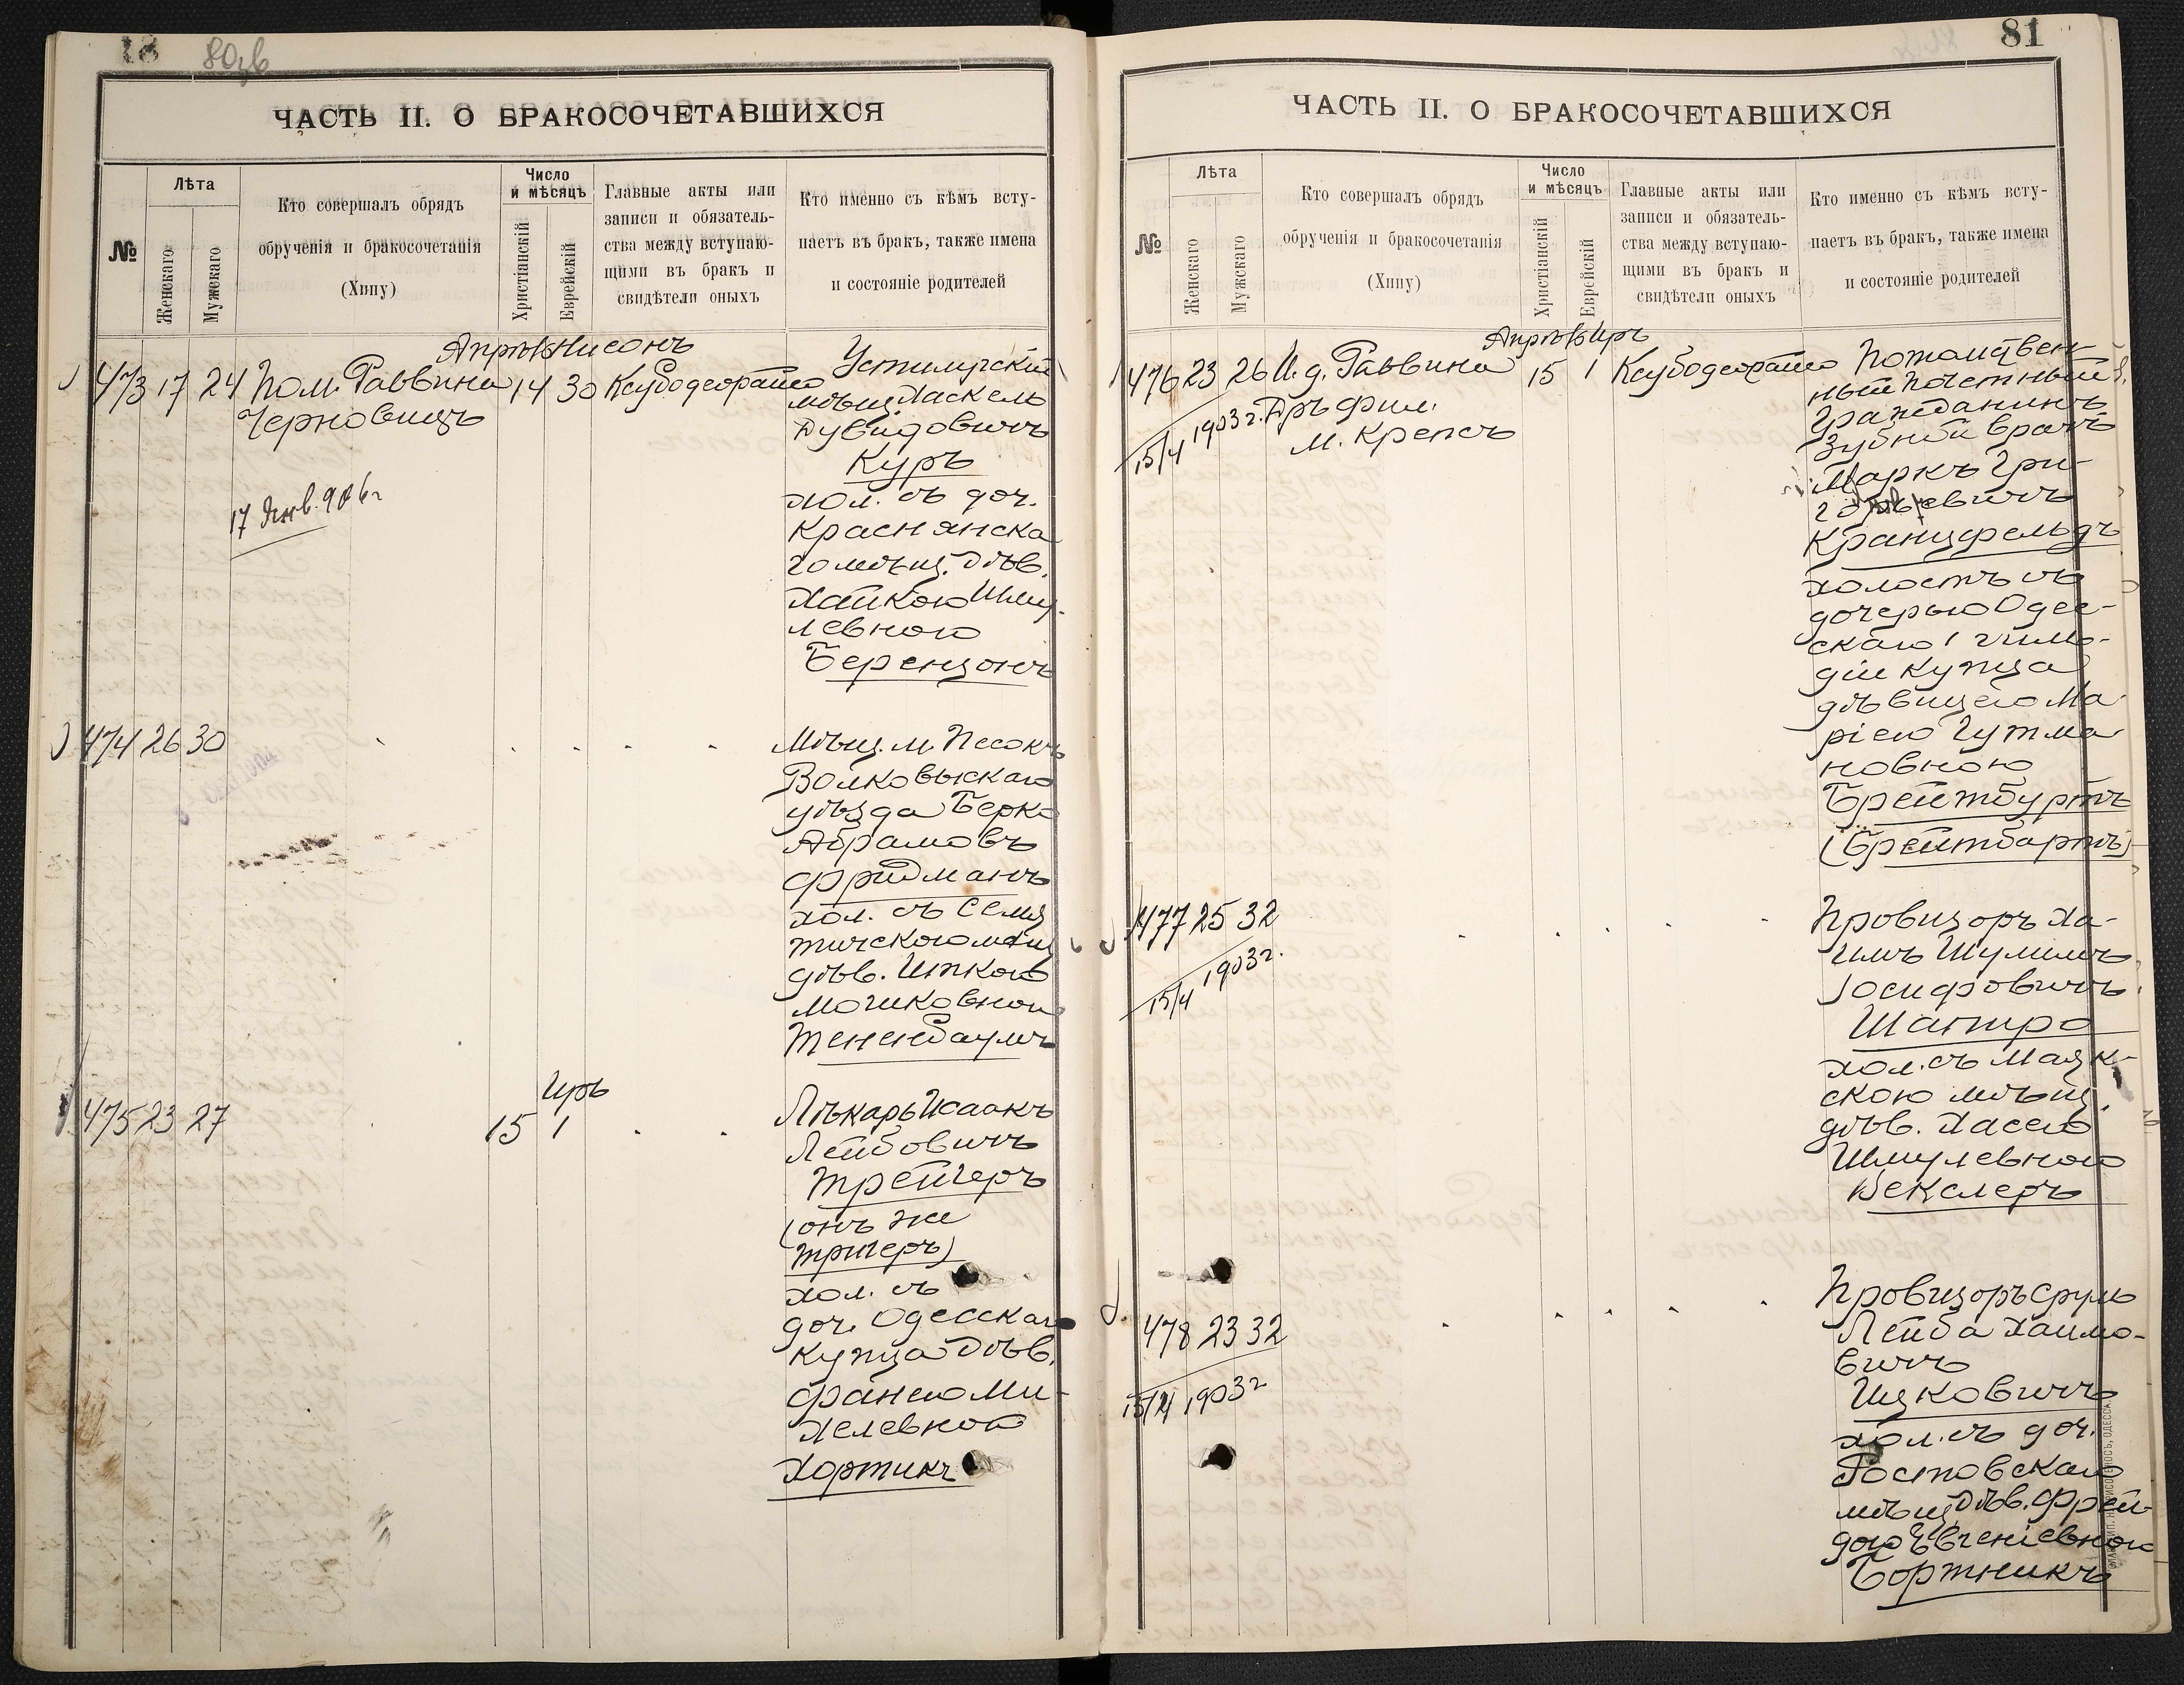 18 80зв
ЧАСТЬ II. О БРАКОСОЧЕТАВШИХСЯ
№
Лѣта
Женскаго
Мужскаго
Кто совершалъ обрядъ
обрученія и бракосочетанія
(Хипу)
Число
и мѣсяцъ
Христіанскій
Еврейскій
Главные акты или
записи и обязатель-
ства между вступаю-
щими въ бракъ и
свидѣтели оныхъ
Кто именно съ кѣмъ всту-
паетъ въ бракъ, также имена
и состояніе родителей
Апрѣль Нисонъ
473 17 24 Пом. Раввина 14 30 Ксубодеорайсо
Черновицъ
17 Янв. 906 г
Устилугскій
мѣщ. Хаскель
Дувидовичъ
Куръ
хол. съ доч.
Краснянска
го мѣщ. Дѣв.
Хайкою Шму-
левною
Берензонъ
474 26 30
Мѣщ. м. Песокъ
Волковыскаго
уѣзда Берко
Абрамовъ
Фридманъ
хол. съ Семя
тичскою мѣщ
дѣв. Ципкою
Мошковною
Тененбаумъ
Иръ
475 23 27 15 1
Лѣкарь Исаакъ
Лейбовичъ
Трейгеръ
(онъ же
Тригеръ)
хол. съ
доч. Одесскаго
Купца Дѣв.
Фанею Ми-
хелевной
Хортикъ
81
ЧАСТЬ II. О БРАКОСОЧЕТАВШИХСЯ
№
Лѣта
Женскаго
Мужскаго
Кто совершалъ обрядъ
обрученія и бракосочетанія
(Хипу)
Число
и мѣсяцъ
Христіанскій
Еврейскій
Главные акты или
записи и обязатель-
ства между вступаю-
щими въ бракъ и
свидѣтели оныхъ
Кто именно съ кѣмъ всту-
паетъ въ бракъ, также имена
и состояніе родителей
Апрѣль Иръ
476 23 26 И. д. Раввина 15 1 Ксубодеорайсо
15/4 1903 г. Дръ фил.
М. Крепсъ
Потомствен-
ный почетный
Гражданинъ
Зубной врачъ
Маркъ Гри-
горьевичъ
Кранцфельдъ
холостъ съ
дочерью Одес-
скаго 1 гиль-
діи купца
дѣвицею Ма
ріею Гутма
новною
Брейтбуртъ
(Брейтбартъ)
477 25 32
15/4 1903 г.
Провизоръ Ха-
имъ Шулимъ
Іосифовичъ
Шапиро
хол. съ Мазк-
скою мѣщ.
дѣв. Хасею
Шмулевною
Векслеръ
478 23 32
15/4 1903 г
Провизоръ Сруль
Лейба Хаимо-
вичъ
Ицковичъ
хол. съ доч.
Ростовскаго
мѣщ Дѣв. Фрей-
дою Евгеніевною
Бортникъ